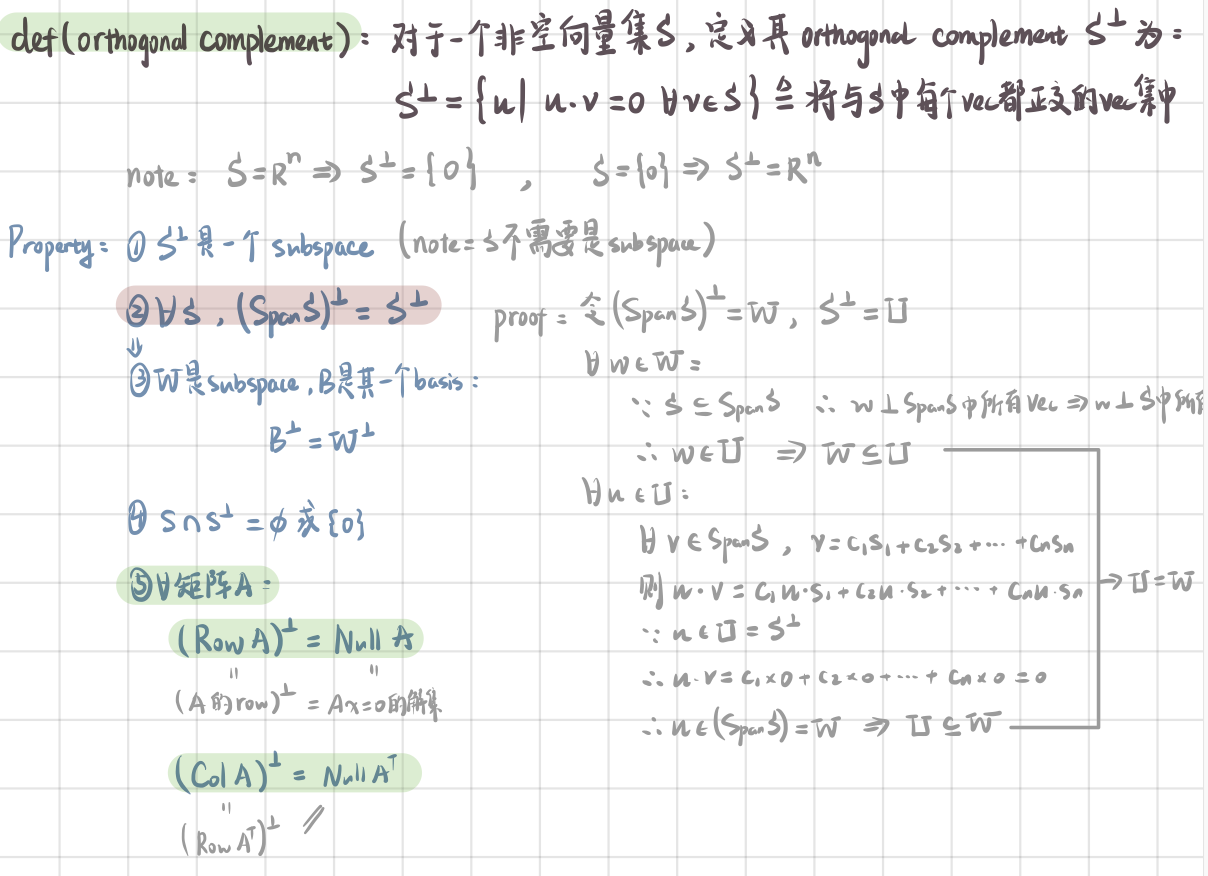 def(orthogonal complement): 对于一个非空向量集S,定义其 orthogonal complement S⊥ 为:
S⊥ = {u| u·v=0 ∀v∈S} ≙ 将与S中每个vec都正交的vec集中
note: S=Rⁿ ⇒ S⊥={0} , S={0} ⇒ S⊥=Rⁿ
Property: ① S⊥是一个 subspace (note: S不需要是subspace)
② ∀S, (Span S)⊥ = S⊥
⇓
③ W是subspace, B是其一个basis:
B⊥ = W⊥
④ S∩S⊥ = ∅ 或 {0}
⑤ ∀矩阵A:
(Row A)⊥ = Null A
" "
(A的row)⊥ = Ax=0的解集
(Col A)⊥ = Null Aᵀ
"
(Row Aᵀ)⊥ //
proof: 令(Span S)⊥=W, S⊥=U
∀ w∈W:
∵ S ⊆ Span S ∴ w⊥Span S中所有vec ⇒ w⊥S中所有
∴ w∈U ⇒ W⊆U
∀u∈U:
∀ v∈Span S, v=c₁s₁+c₂s₂+···+cₙsₙ
则 u·v = c₁u·s₁+c₂u·s₂+···+cₙu·sₙ
∵ u∈U=S⊥
∴ u·v=c₁×0+c₂×0+···+cₙ×0=0
∴ u∈(Span S)=W ⇒ U⊆W
→ U=W